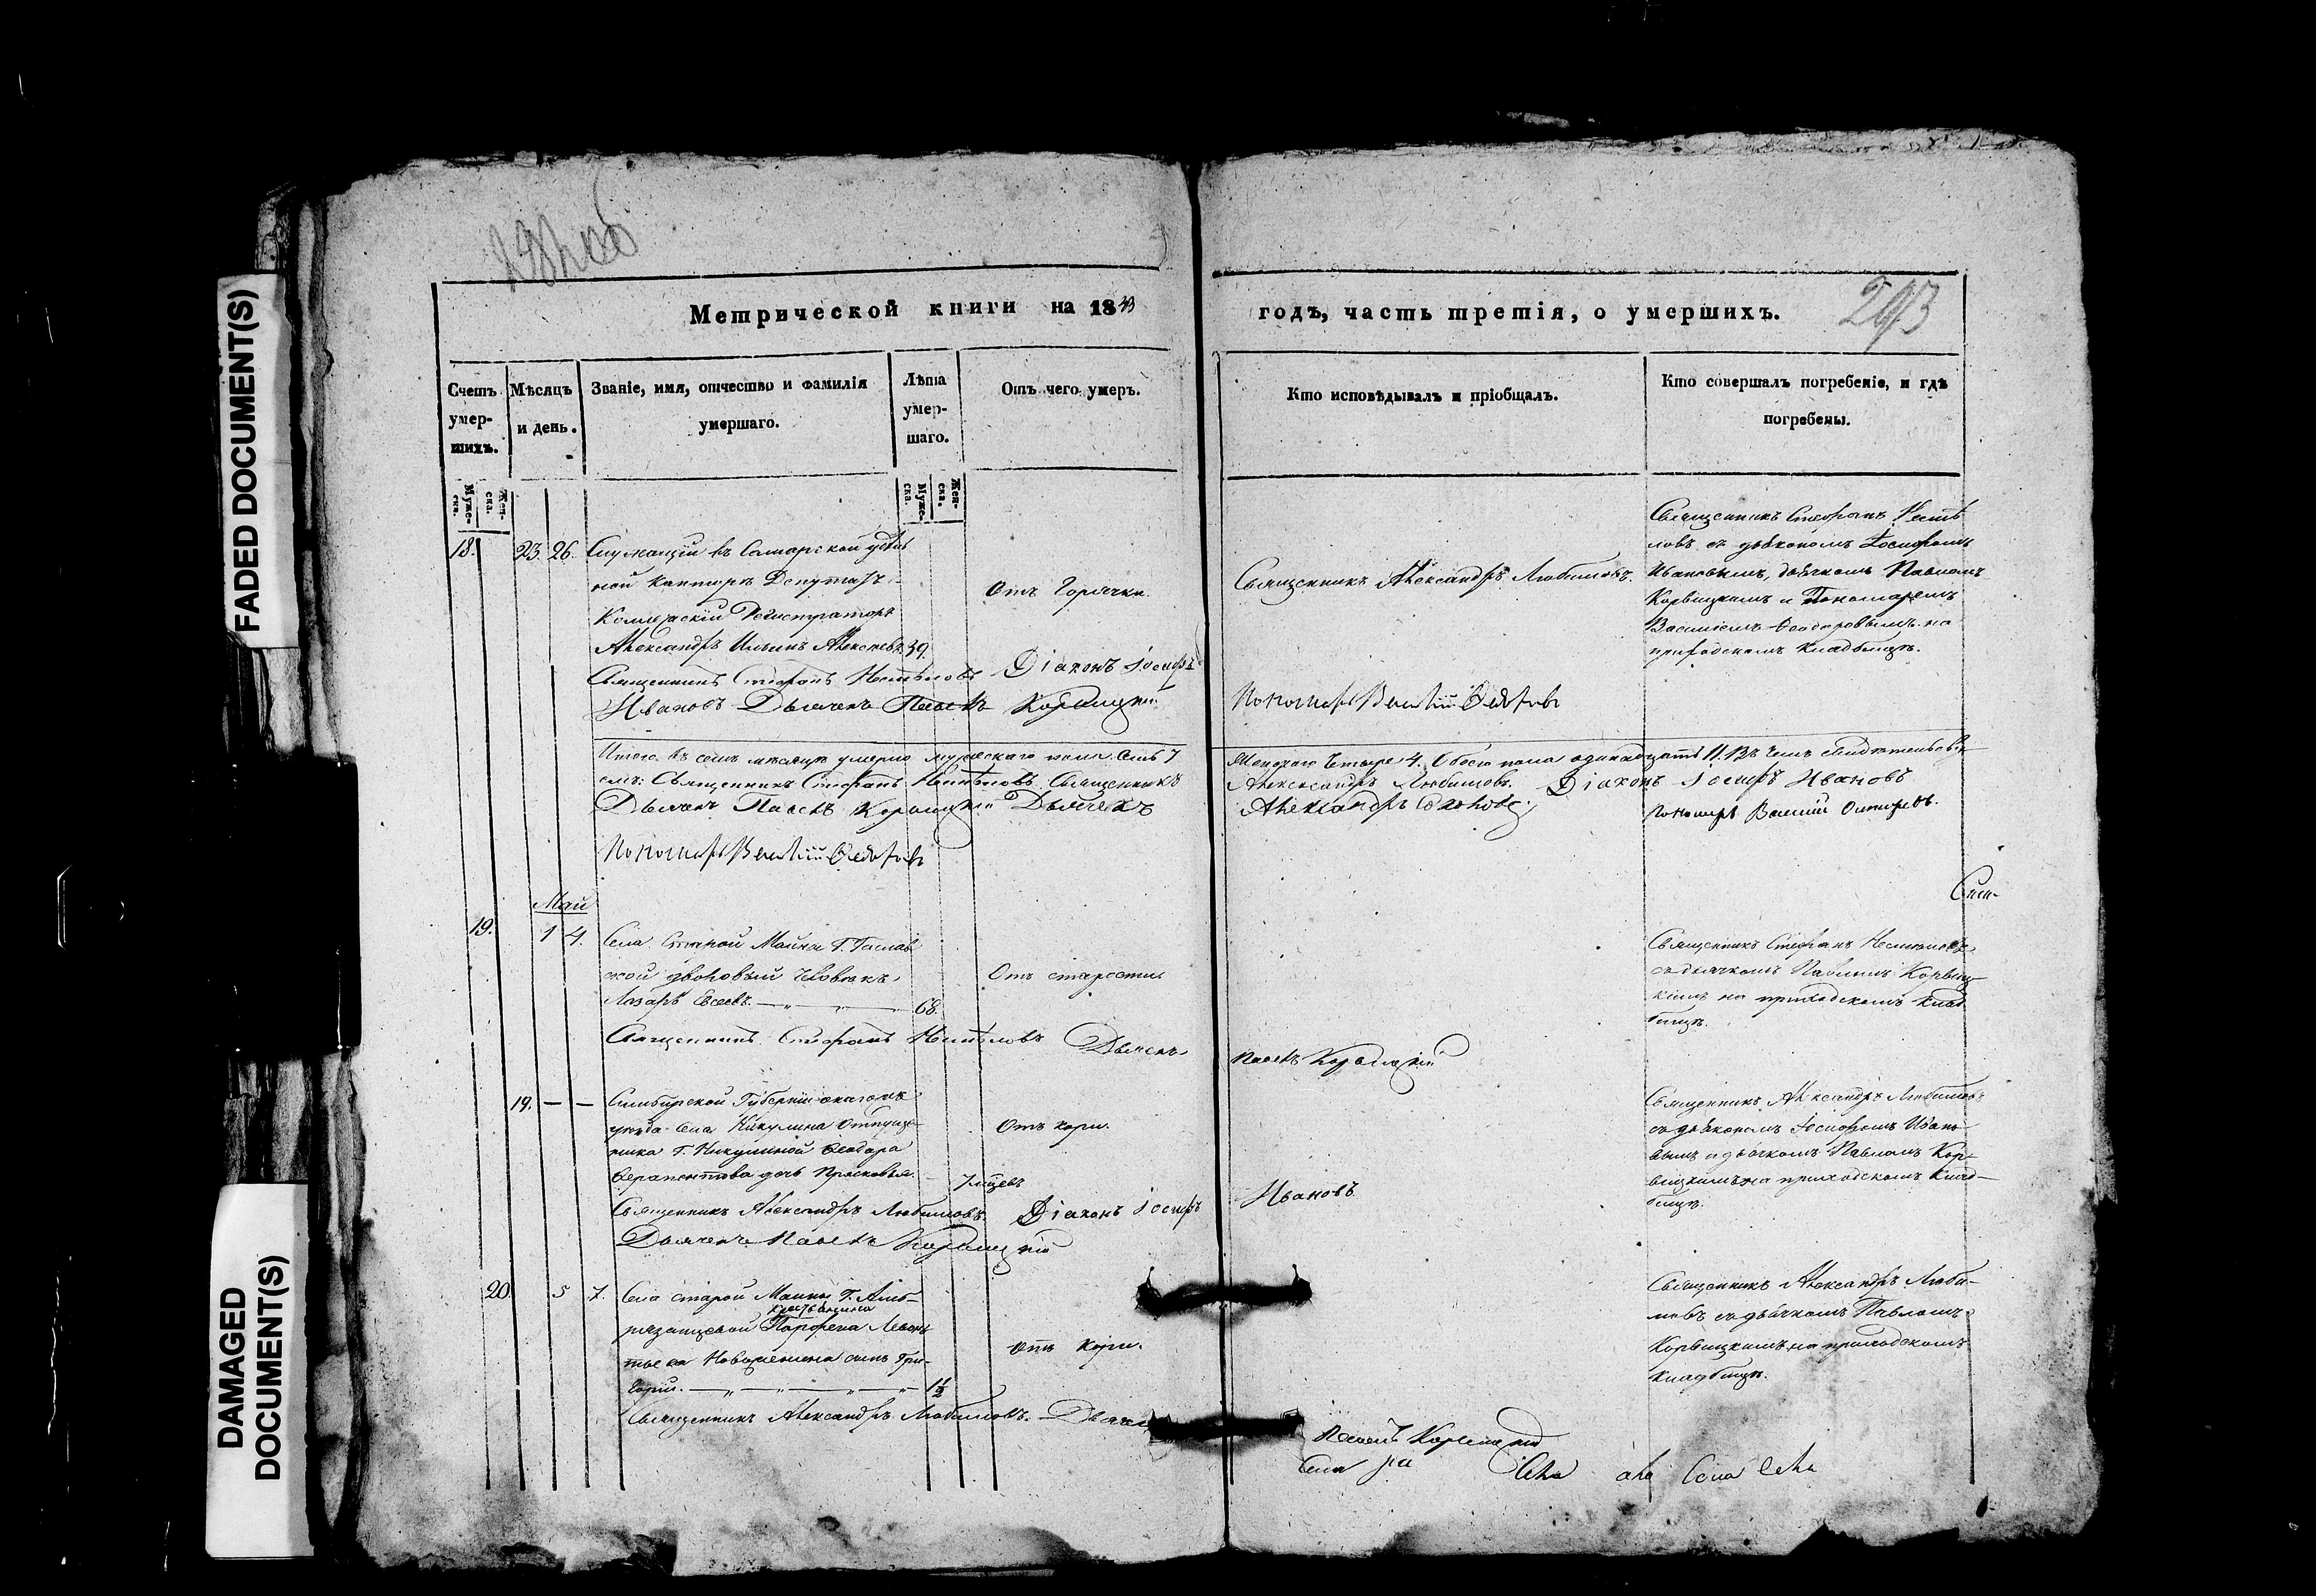 FADED DOCUMENT(S)
DAMAGED
DOCUMENT(S)
Метрической книги на 1843
годъ, часть третія, о умершихъ.
293
Счетъ умер-шихъ.
Мѣсяцъ и день.
Званіе, имя, отчество и фамилія умершаго.
Лѣта умер-шаго.
Отъ чего умеръ.
Кто исповѣдывалъ и пріобщалъ.
Кто совершалъ погребеніе, и гдѣ погребены.
Муже-ска.
Жен-ска.
Муже-ска.
Жен-ска.
18. 23. 26. Служащій въ Самарской удѣль
ной Канторѣ Депутатъ
Коллежскій Регистраторъ
Александръ Ильинъ Алексѣевъ 39.
Отъ Горячки.
Священникъ Александръ Любимовъ.
Священникъ Стефанъ Несмѣ
ловъ съ діакономъ Іосифомъ
Ивановымъ, дьячкомъ Павломъ
Корвицкимъ и Пономаремъ
Василіемъ Ѳеодоровымъ на
приходскомъ кладбищѣ.
Священникъ Стефанъ Несмѣловъ Діаконъ Іосифъ
Ивановъ Дьячекъ Павелъ Корвицкій
Пономарь Василій Ѳедоровъ
Итого въ семъ мѣсяцѣ умерло мужескаго пола семь 7
Женскаго четыре 4. Обоего пола одинадцать 11. Въ чемъ свидѣтельству
емъ: Священникъ Стефанъ Несмѣловъ. Священникъ
Александръ Любимовъ. Діаконъ Іосифъ Ивановъ
Дьячекъ Павелъ Корвицкій Дьячекъ
Александръ
Пономарь Василій
Пономарь Василій Ѳедоровъ
Май
19. 1 4. Села Старой Майны Г.
ской дворовый человѣкъ
Лазарь Евсеевъ. 68.
Отъ старости
Священникъ Стефанъ Несмѣловъ
съ дьячкомъ Павломъ Корвиц
кимъ на приходскомъ клад
бищѣ.
Священникъ Стефанъ Несмѣловъ Дьячекъ
Павелъ Корвицкій
19. — — Симбирской Губерніи
уѣзда села Никулина отпущен
ника Г. Никулиной Ѳеодора
Ѳерапонтова дочь Прасковья. 7 мѣсцевъ
Отъ кори.
Священникъ Александръ Любимовъ
съ діакономъ Іосифомъ Ивано
вымъ и дьячкомъ Павломъ Кор-
вицкимъ на приходскомъ клад-
бищѣ.
Священникъ Александръ Любимовъ. Діаконъ Іосифъ
Ивановъ
Дьячекъ Павелъ Корвицкій
20. 5 7. Села старой Майны Г.
крестьянина
Парфена Леонь
тьева сынъ Гри-
горій. 1½
Отъ кори.
Священникъ Александръ Люби-
мовъ съ дьячкомъ Павломъ
Корвицкимъ на приходскомъ
кладбищѣ.
Священникъ Александръ Любимовъ. Дьячекъ
Павелъ Корвицкій